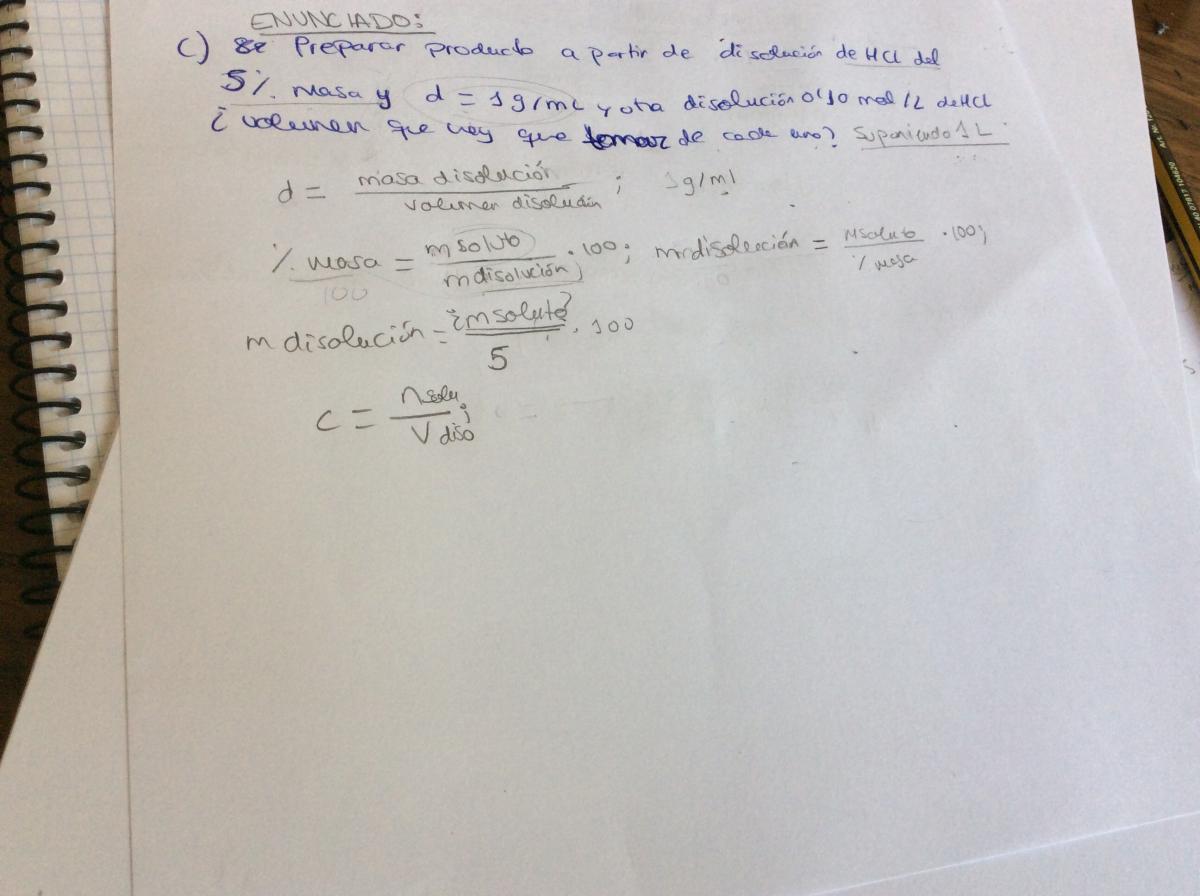 ENUNCIADO:
C) se Preparar producto a partir de disolución de HCl del
5% masa y d = 1g/mL y otra disolución 0'10 mol/L de HCl
¿volumen que hay que tomar de cada uno? Suponiendo 1L
d = masa disolución / volumen disolución ; 1g/ml
% masa / 100 = m soluto / m disolución · 100; m disolución = m soluto / % masa · 100;
m disolución = ¿m soluto? / 5 · 100
C = n solu. / V diso ;